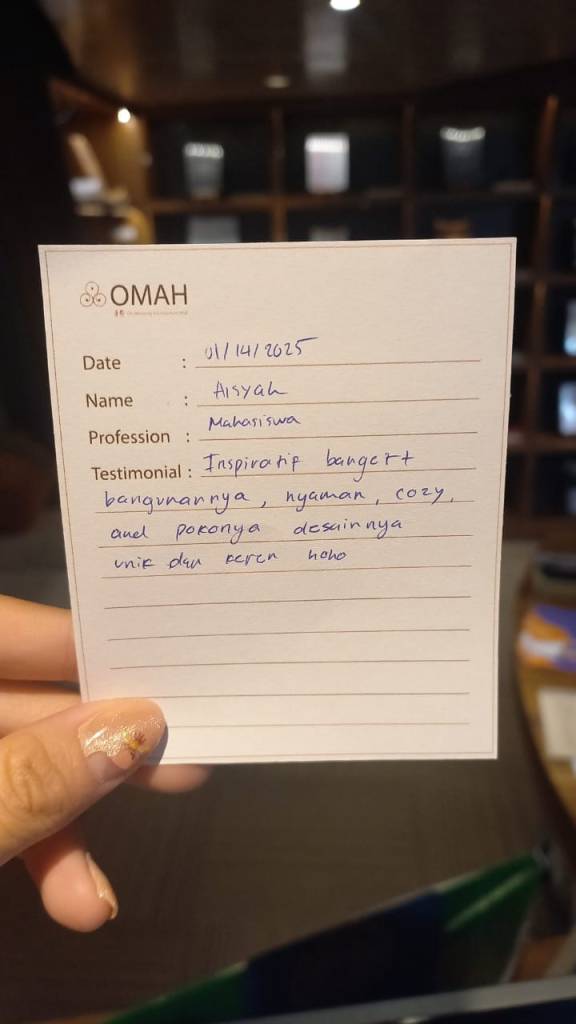 OMAH
Date : 01/14/2025
Name : Aisyah
Profession : Mahasiswa
Testimonial : Inspiratif banget
bangunannya, nyaman, cozy,
and pokonya desainnya
unik dan keren hoho